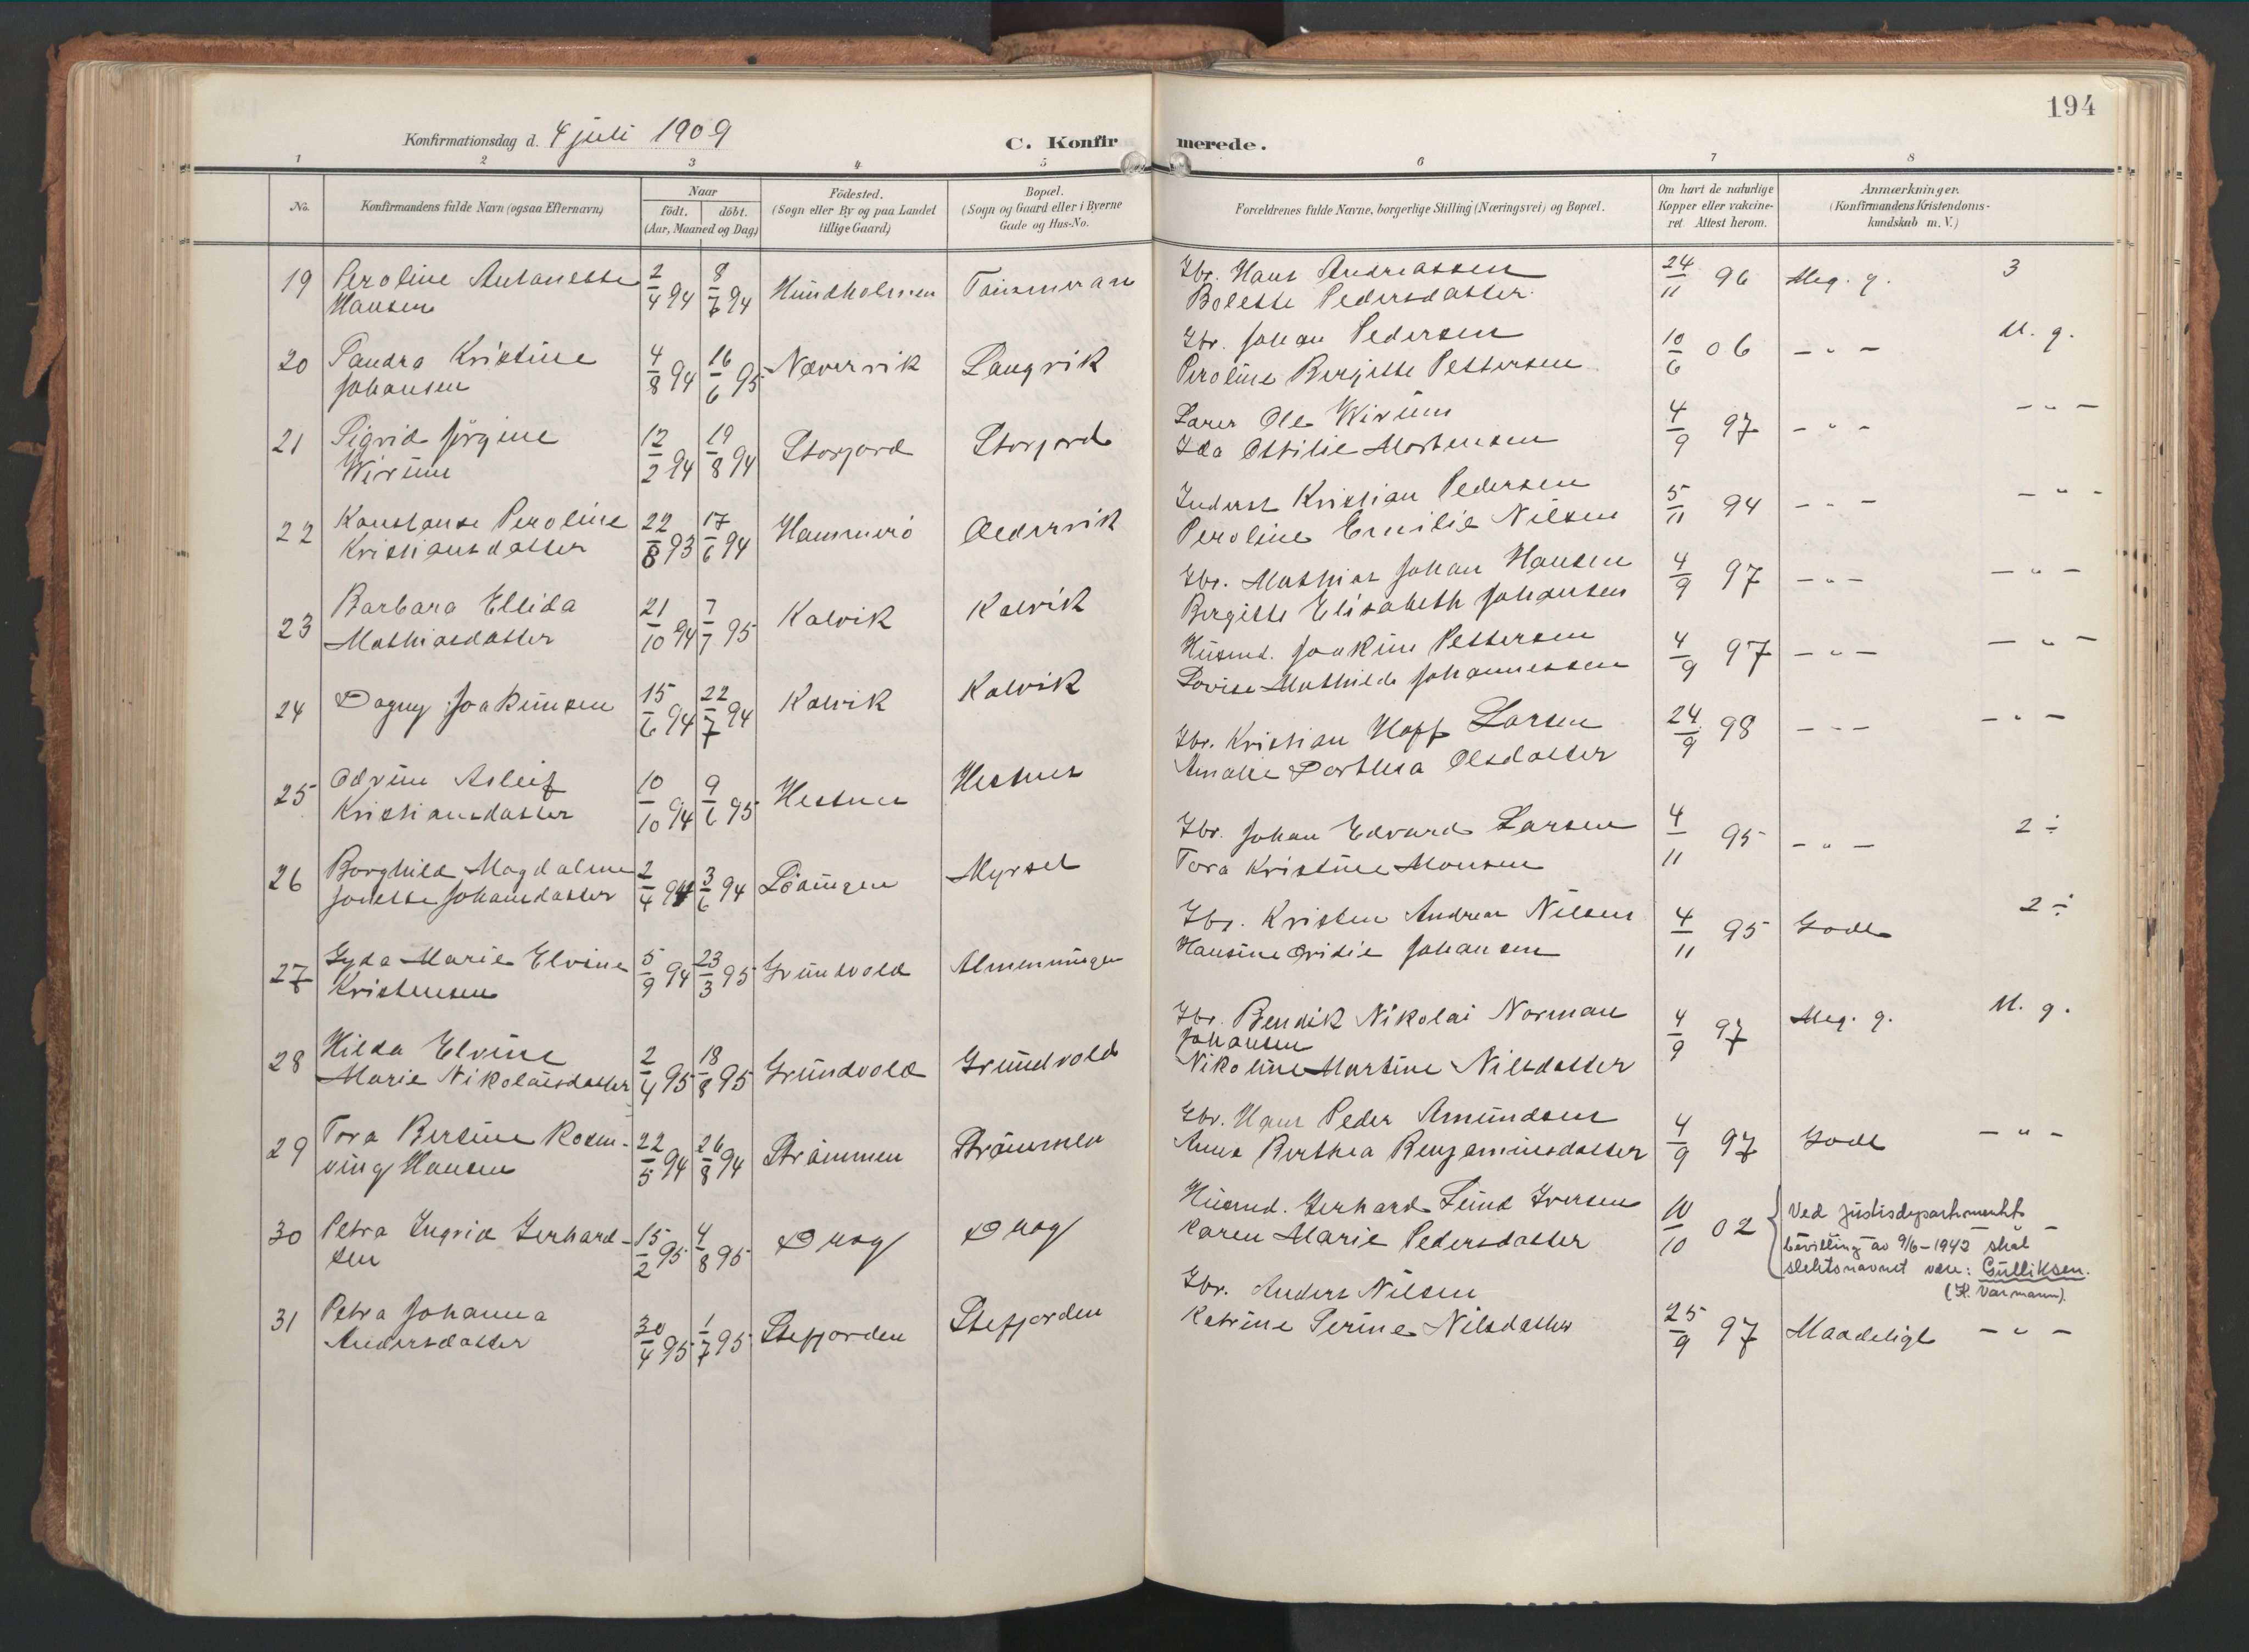 194
Konfirmationsdag d. 4 juli 1909
C. Konfirmerede.
1 2 3 4 5 6 7 8
No.
Konfirmandens fulde Navn (ogsaa Efternavn)
Naar
födt. döbt.
(Aar, Maaned og Dag)
Födested.
(Sogn eller By og paa Landet
tillige Gaard)
Bopæl.
(Sogn og Gaard eller i Byerne
Gade og Hus-No.
Forældrenes fulde Navne, borgerlige Stilling (Næringsvei) og Bopæl.
Om havt de naturlige
Kopper eller vakcine-
ret Attest herom.
Anmærkninger.
(Konfirmandens Kristendoms-
kundskab m. V.)
19 Peroline Antonette 2/4 94 8/7 94 Hundholmen Gbr. Hans Andreassen 24/11 96 Meg. g. 3
Hansen Bolette Pedersdatter
20 Sandra Kristine 4/8 94 16/6 95 Næververvik Langvik Gbr. Johan Pedersen 10/6 06 — " — M. g.
Johansen Peroline Bergitte Pettersen
21 Sigrid Jörgine 12/2 94 19/8 94 Storjord Storjord Lærer Ole Wirum 4/9 97 — " — — " —
Wirum Ida Ottilie Mortensen
22 Konstanse Peroline 22/8 93 17/6 94 Hammerö Inderst Kristian Pedersen 5/11 94 — " — — " —
Kristiansdatter Peroline Emilie Nilsen
23 Barbara Ellida 21/10 94 7/7 95 Kalvik Kalvik Gbr. Mathias Johan Hansen 4/9 97 — " — — " —
Mathiasdatter Bergitte Elisabeth Johansen
24 Dagny Joakimsen 15/6 94 22/7 94 Kalvik Kalvik Husmd. Joakim Pettersen 4/9 97 — " — — " —
Lovise Mathilde Johannessen
25 Odrun Asleif 10/10 94 9/6 95 Hestnes Hestnes Gbr. Kristian Hopp Larsen 24/9 98 — " — — " —
Kristiansdatter Amalie Dorthea Olsdatter
26 Borghild Magdalene 2/4 94 3/6 94 Lödingen Myrsel Gbr. Johan Edvard Larsen 4/11 95 — " — 2 ÷
Johansdatter Tora Kristine Monsen
27 Gyda Marie Elvine 5/9 94 23/3 95 Grundvold Almenningen Gbr. Kristen Andreas Nilsen 4/11 95 Godt 2 ÷
Kristensen Hansine Ovidie Johansen
28 Hilda Elvine 2/4 95 18/8 95 Grundvold Grundvold Gbr. Bendik Nikolai Norman 4/9 97 Meg. g. M. g.
Marie Nikolaisdatter Johansen
Nikoline Martine Nilsdatter
29 Tora Bertine Rosen- 22/5 94 26/8 94 Strömmen Strömmen Gbr. Hans Peder Amundsen 4/9 97 Godt — " —
ving Hansen Anna Berthea Benjaminsdatter
30 Petra Ingrid Gerhard- 15/2 95 4/8 95 Drag Drag Husmd. Gerhard Lund Iversen 10/10 02 — " —
sen Karen Marie Pedersdatter
Ved justisdepartementets
bevilling av 9/6-1942 skal
slektsnavnet være: Gulliksen.
(K. Varmann).
31 Petra Johanna 30/4 95 1/7 95 Stefjorden Stefjorden Gbr. Anders Nilsen 25/9 97 Maadeligt — " —
Andersdatter Katrine Perine Nilsdatter